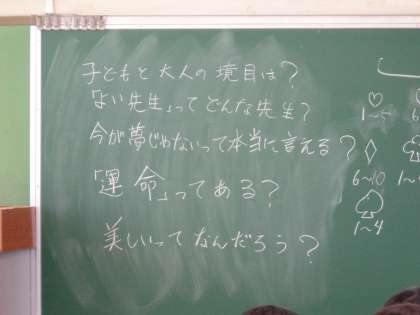 子どもと大人の境目は?
「よい先生」ってどんな先生?
今が夢じゃないって本当に言える?
「運命」ってある?
美しいってなんだろう?
♡
1~5
♢
6~10
♤
1~4
6
♧
1~